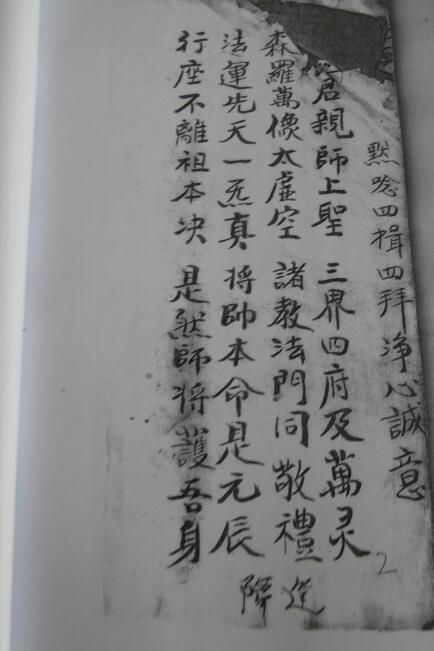 默唸四揖四拜 淨心誠意
君親師上聖 三界四府及萬灵
森羅萬像太虛空 諸教法門同敬禮
法運先天一炁真 將帥本命是元辰
行座不離祖本决 是然師將護吾身
2